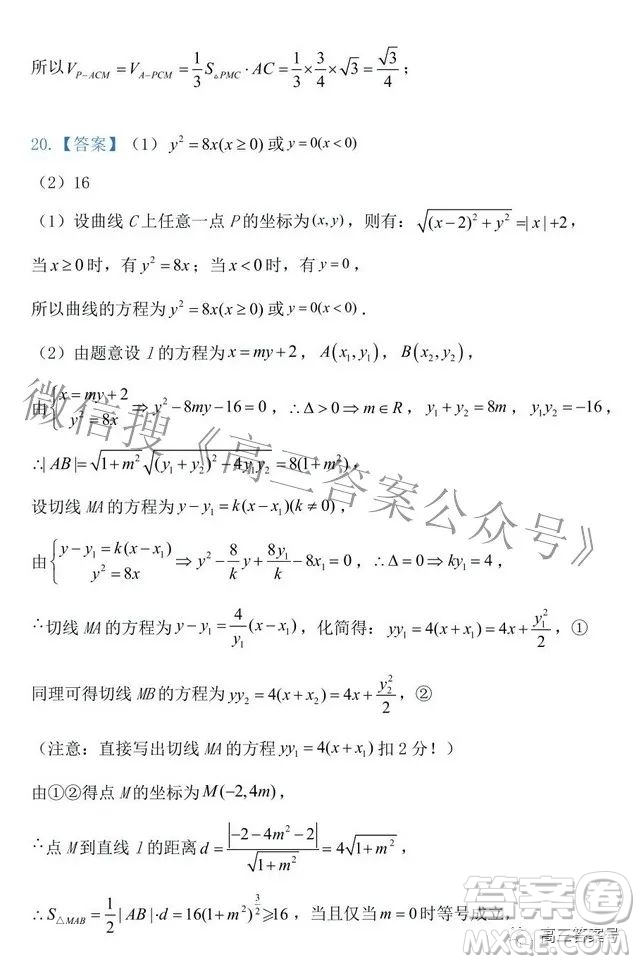 所以V_{P-ACM}=V_{A-PCM}=\frac{1}{3}S_{△PMC}·AC=\frac{1}{3}×\frac{3}{4}×\sqrt{3}=\frac{\sqrt{3}}{4}；
20.【答案】（1）y²=8x(x≥0)或y=0(x<0)
（2）16
（1）设曲线C上任意一点P的坐标为(x,y)，则有：\sqrt{(x-2)²+y²}=|x|+2，
当x≥0时，有y²=8x；当x<0时，有y=0，
所以曲线的方程为y²=8x(x≥0)或y=0(x<0).
（2）由题意设l的方程为x=my+2，A(x₁,y₁)，B(x₂,y₂)，
由{x=my+2 y²=8x⇒y²-8my-16=0，∴Δ>0⇒m∈R，y₁+y₂=8m，y₁y₂=-16，
∴|AB|=\sqrt{1+m²}\sqrt{(y₁+y₂)²-4y₁y₂}=8(1+m²)，
设切线MA的方程为y-y₁=k(x-x₁)(k≠0)，
由{y-y₁=k(x-x₁) y²=8x⇒y²-\frac{8}{k}y+\frac{8y₁}{k}-8x₁=0，∴Δ=0⇒ky₁=4，
∴切线MA的方程为y-y₁=\frac{4}{y₁}(x-x₁)，化简得：yy₁=4(x+x₁)=4x+\frac{y₁²}{2}，①
同理可得切线MB的方程为yy₂=4(x+x₂)=4x+\frac{y₂²}{2}，②
（注意：直接写出切线MA的方程yy₁=4(x+x₁)扣2分！）
由①②得点M的坐标为M(-2,4m)，
∴点M到直线l的距离d=\frac{|-2-4m²-2|}{\sqrt{1+m²}}=4\sqrt{1+m²}，
∴S_{△MAB}=\frac{1}{2}|AB|·d=16(1+m²)^{\frac{3}{2}}≥16，当且仅当m=0时等号成立，
微信搜《高三答案公众号》
答案圈
MXQE.COM
高三答案号